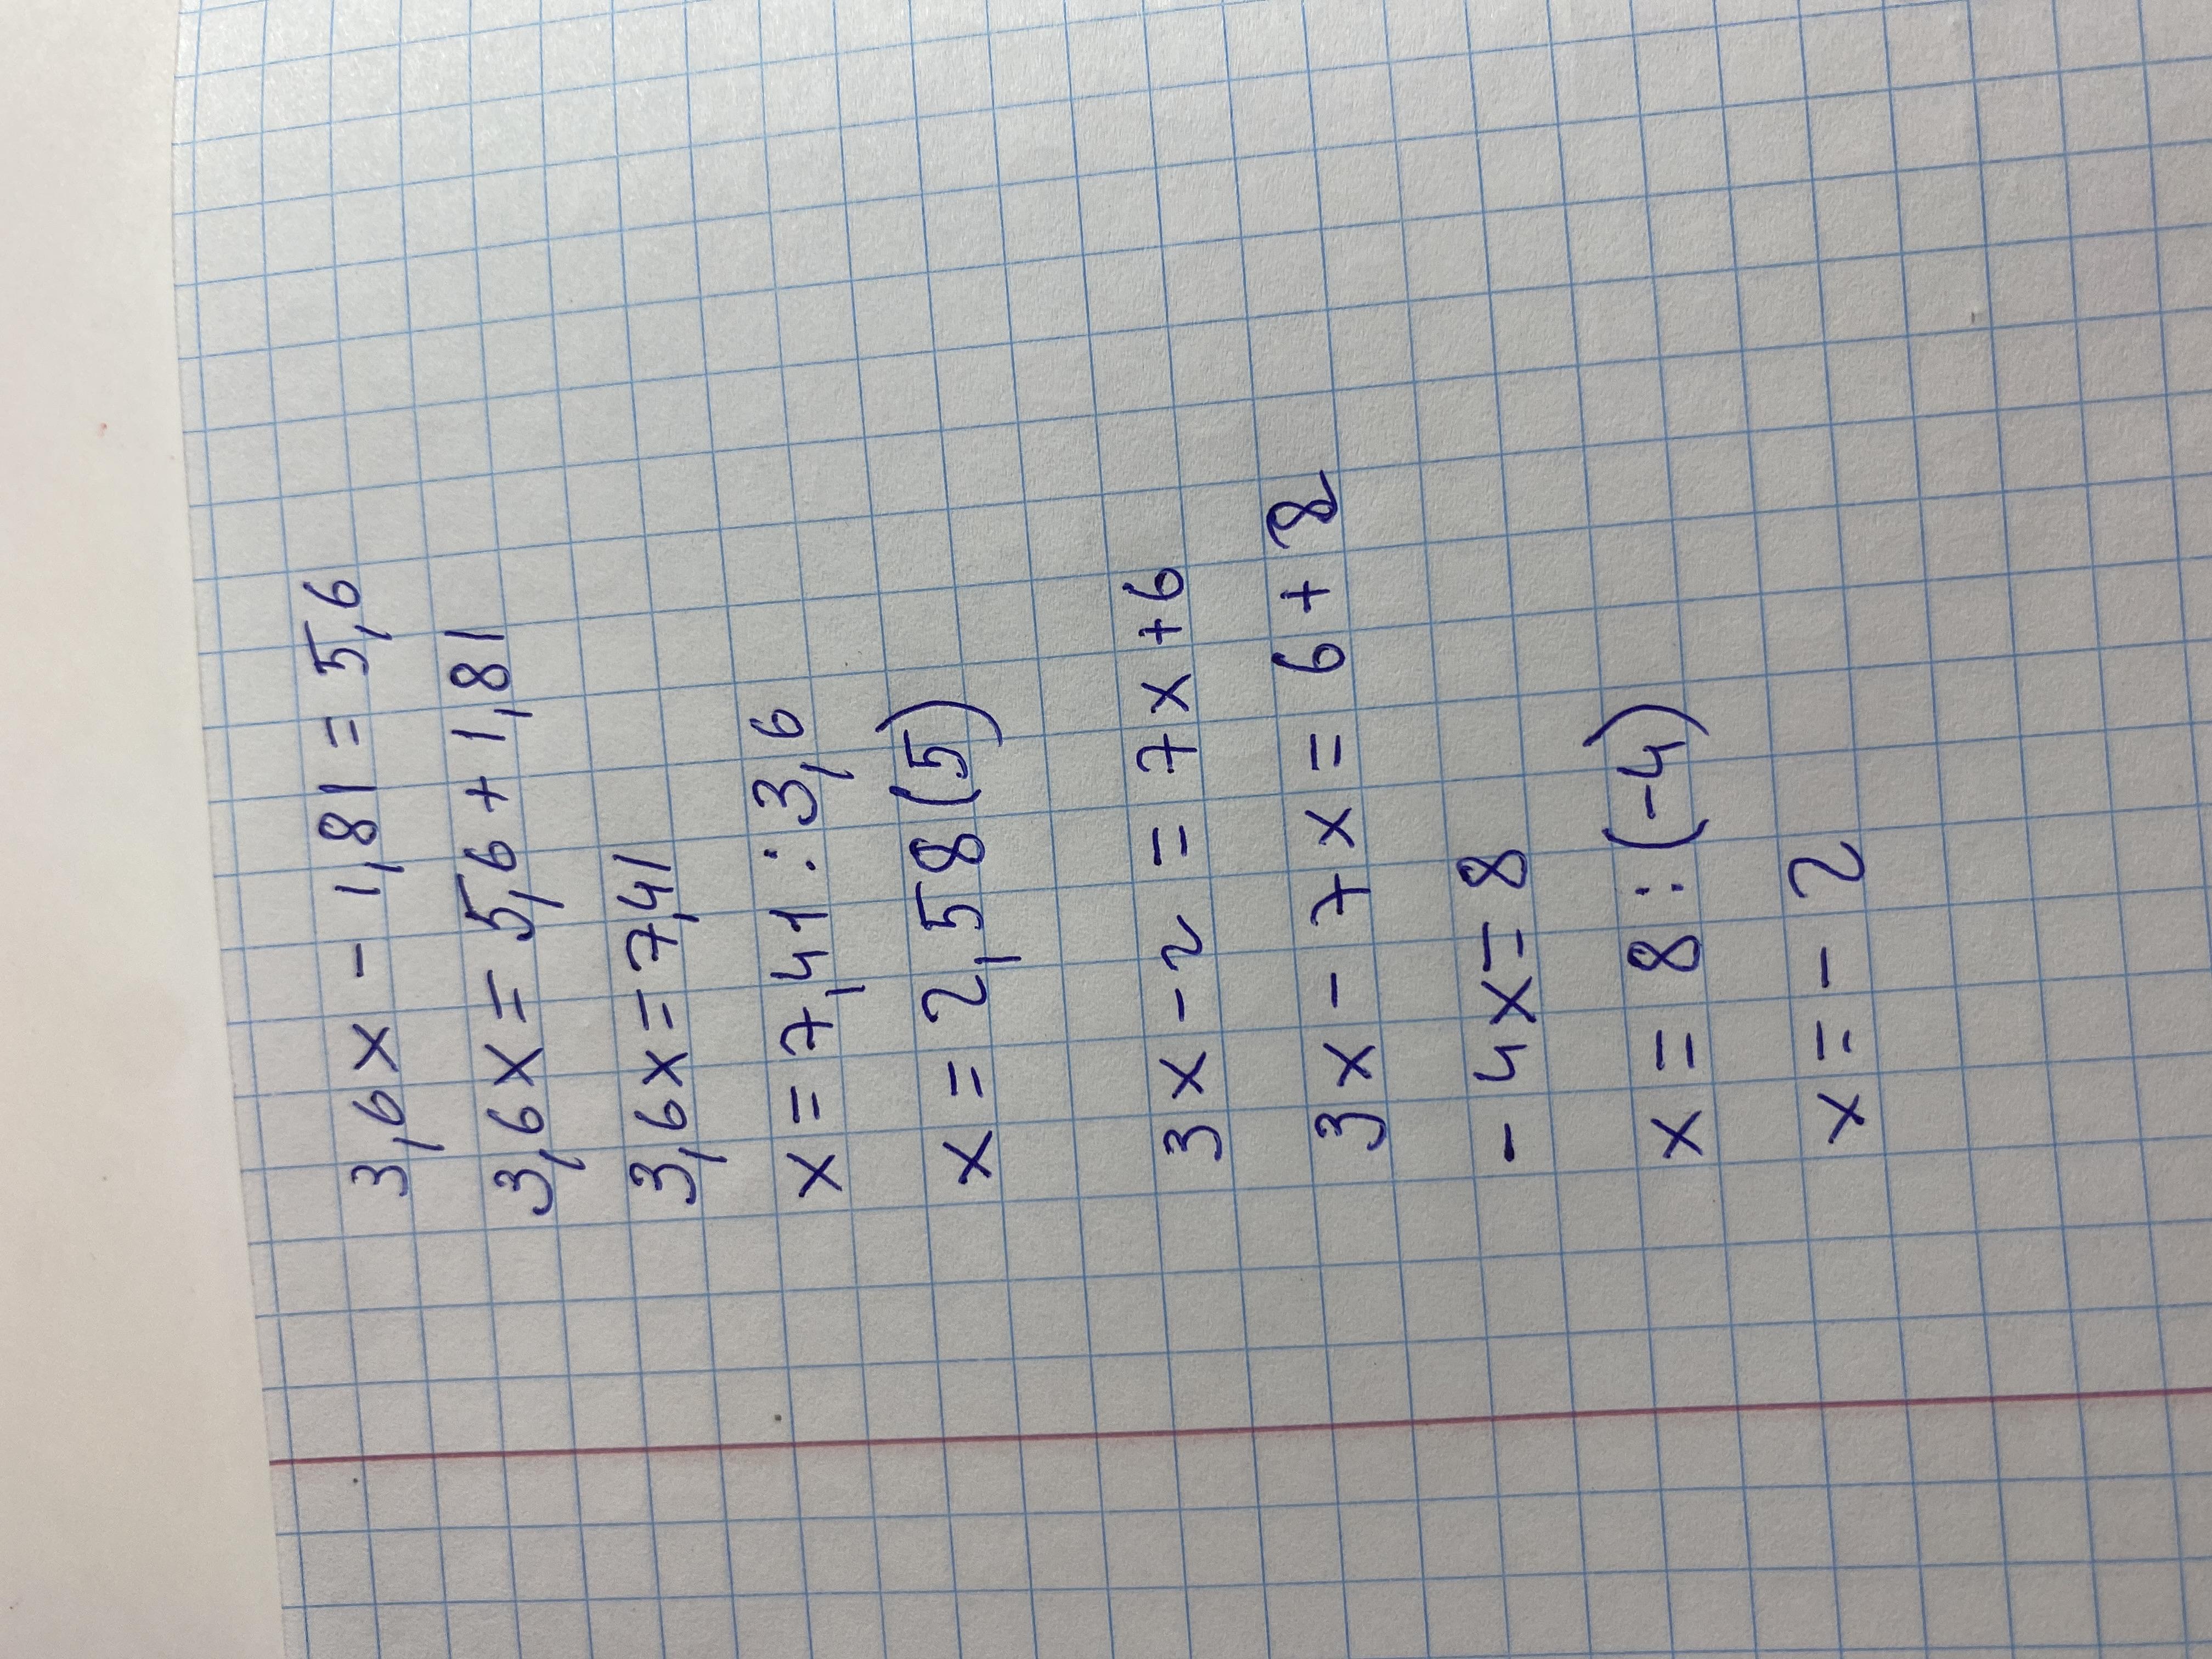 3,6x - 1,81 = 5,6
3,6x = 5,6 + 1,81
3,6x = 7,41
x = 7,41 : 3,6
x = 2,58(5)
3x - 2 = 7x + 6
3x - 7x = 6 + 2
- 4x = 8
x = 8 : (-4)
x = - 2